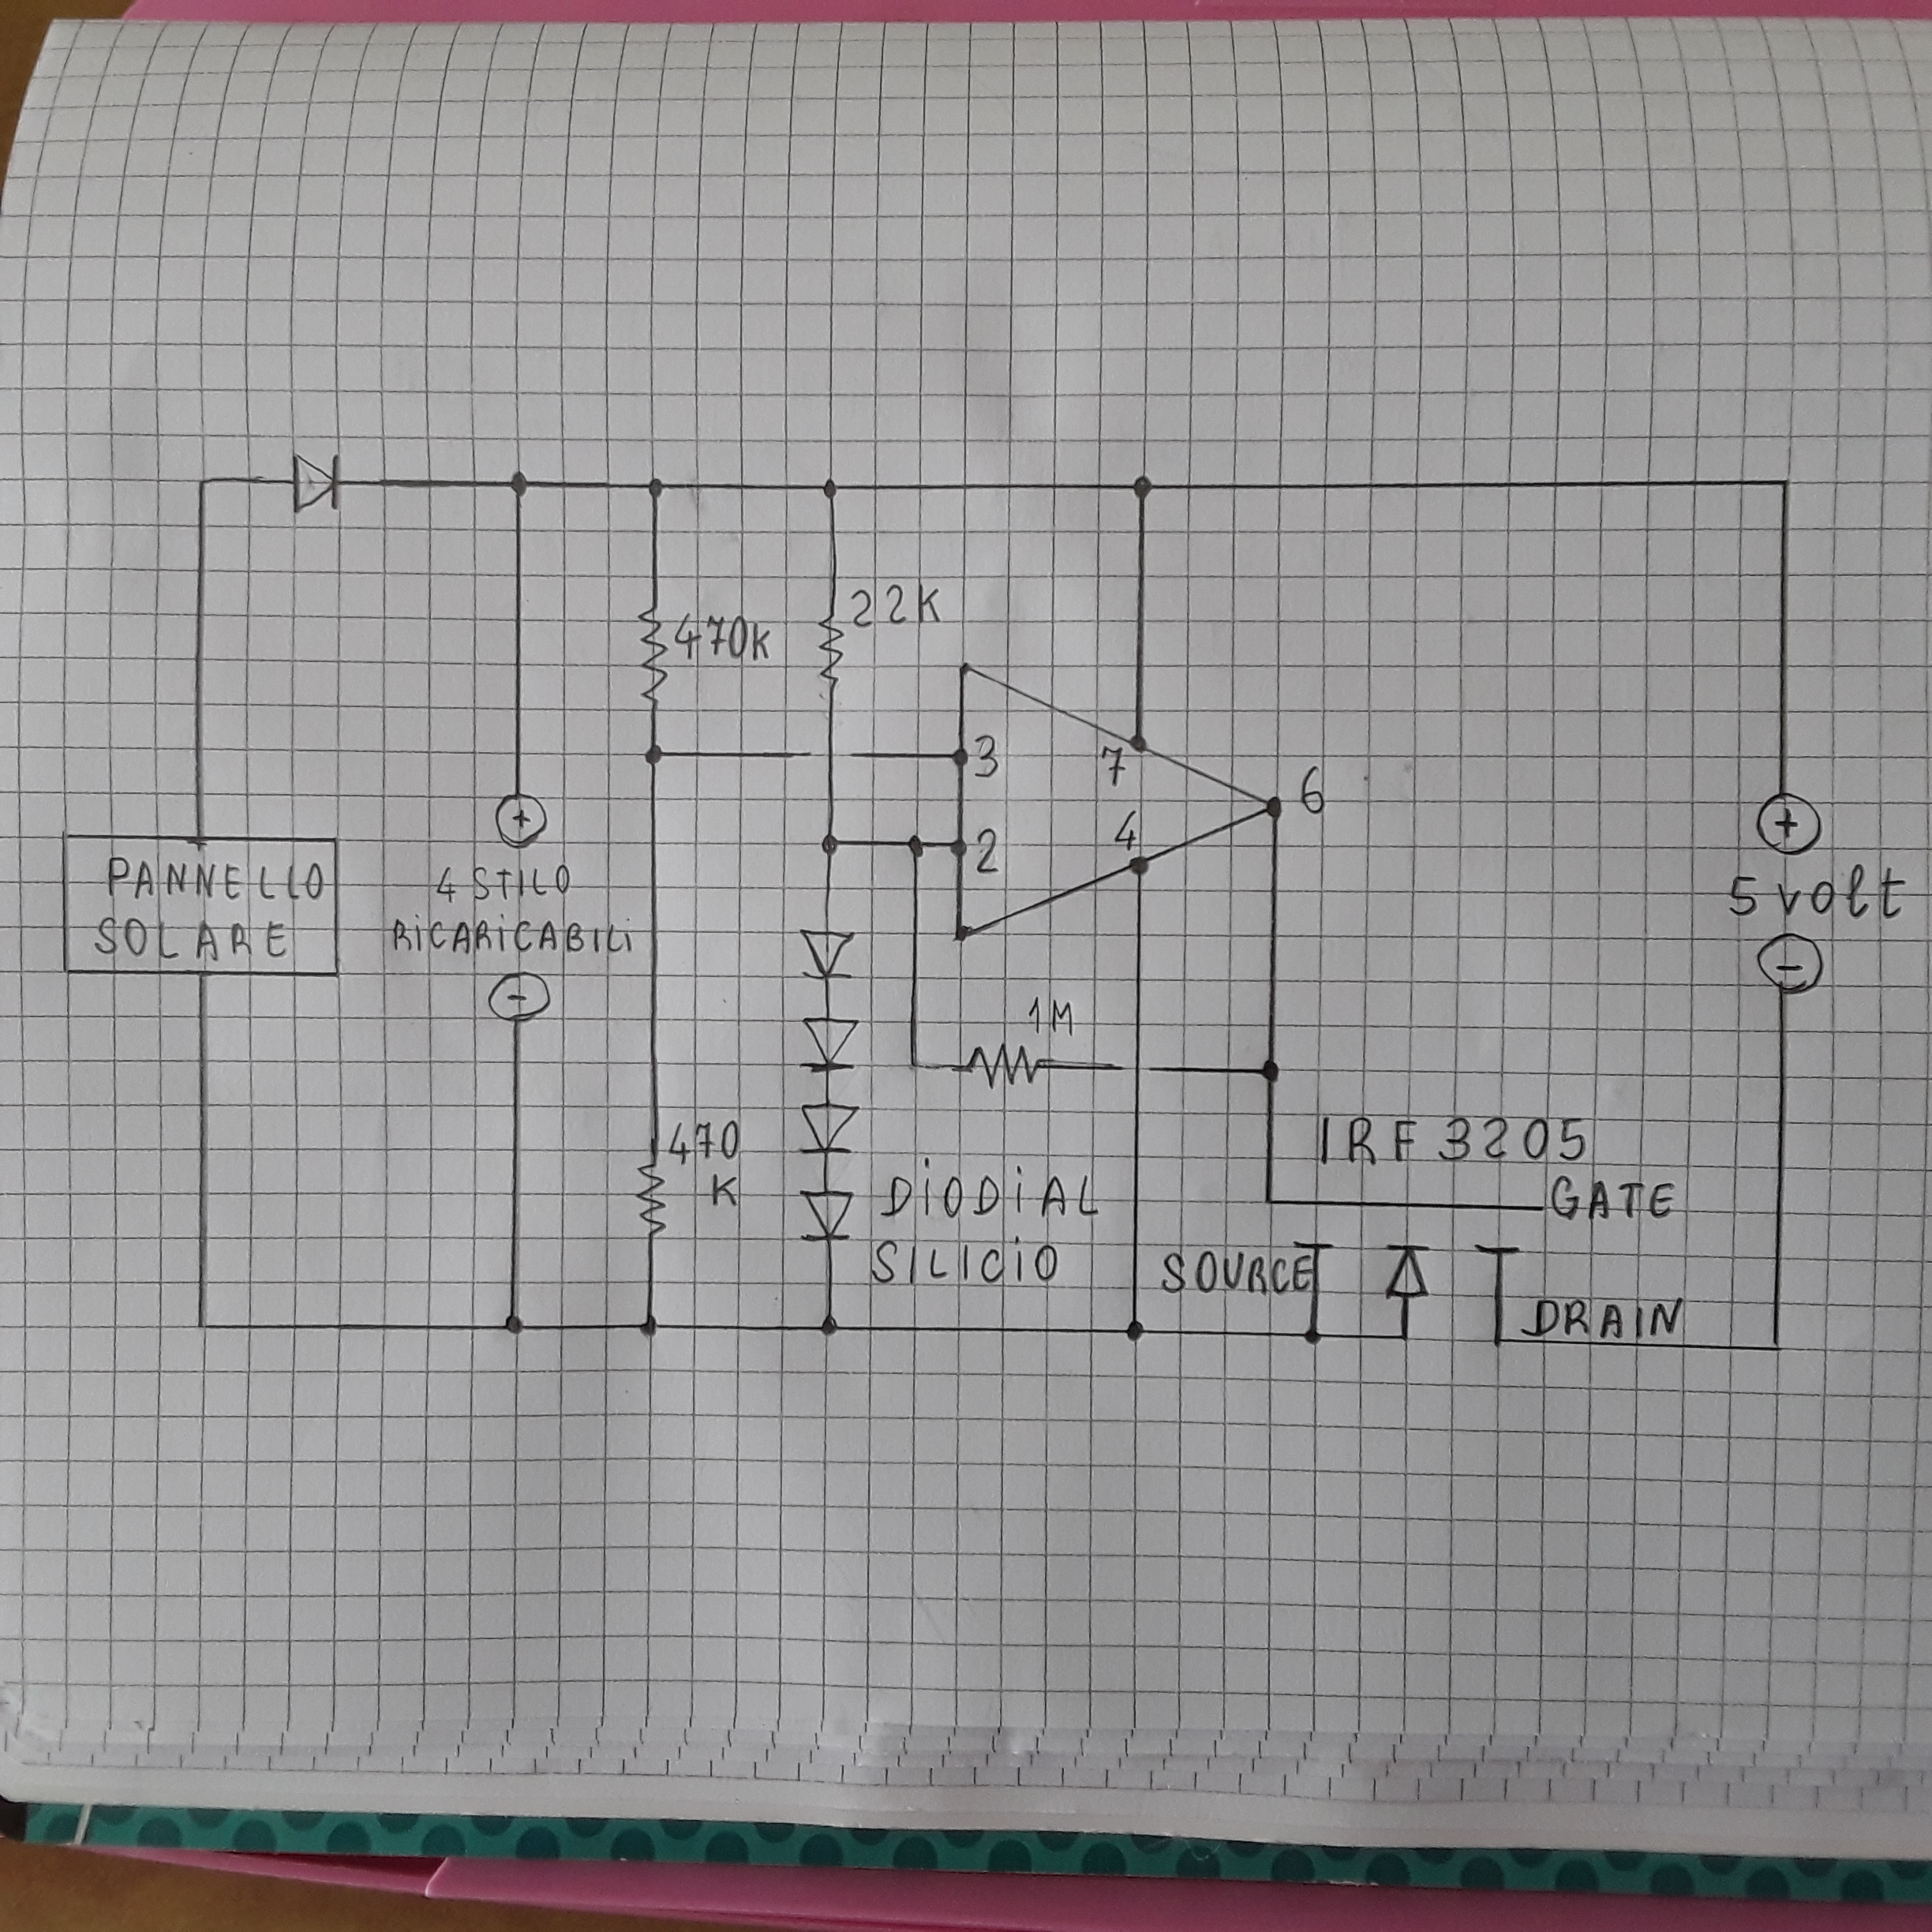 470K
22K
3
7
6
2
4
PANNELLO
SOLARE
4 STILO
RiCARiCABILi
+
-
+
5 volt
-
1M
470
K
DiODiAL
SILICiO
IRF 3205
GATE
SOURCE
DRAIN